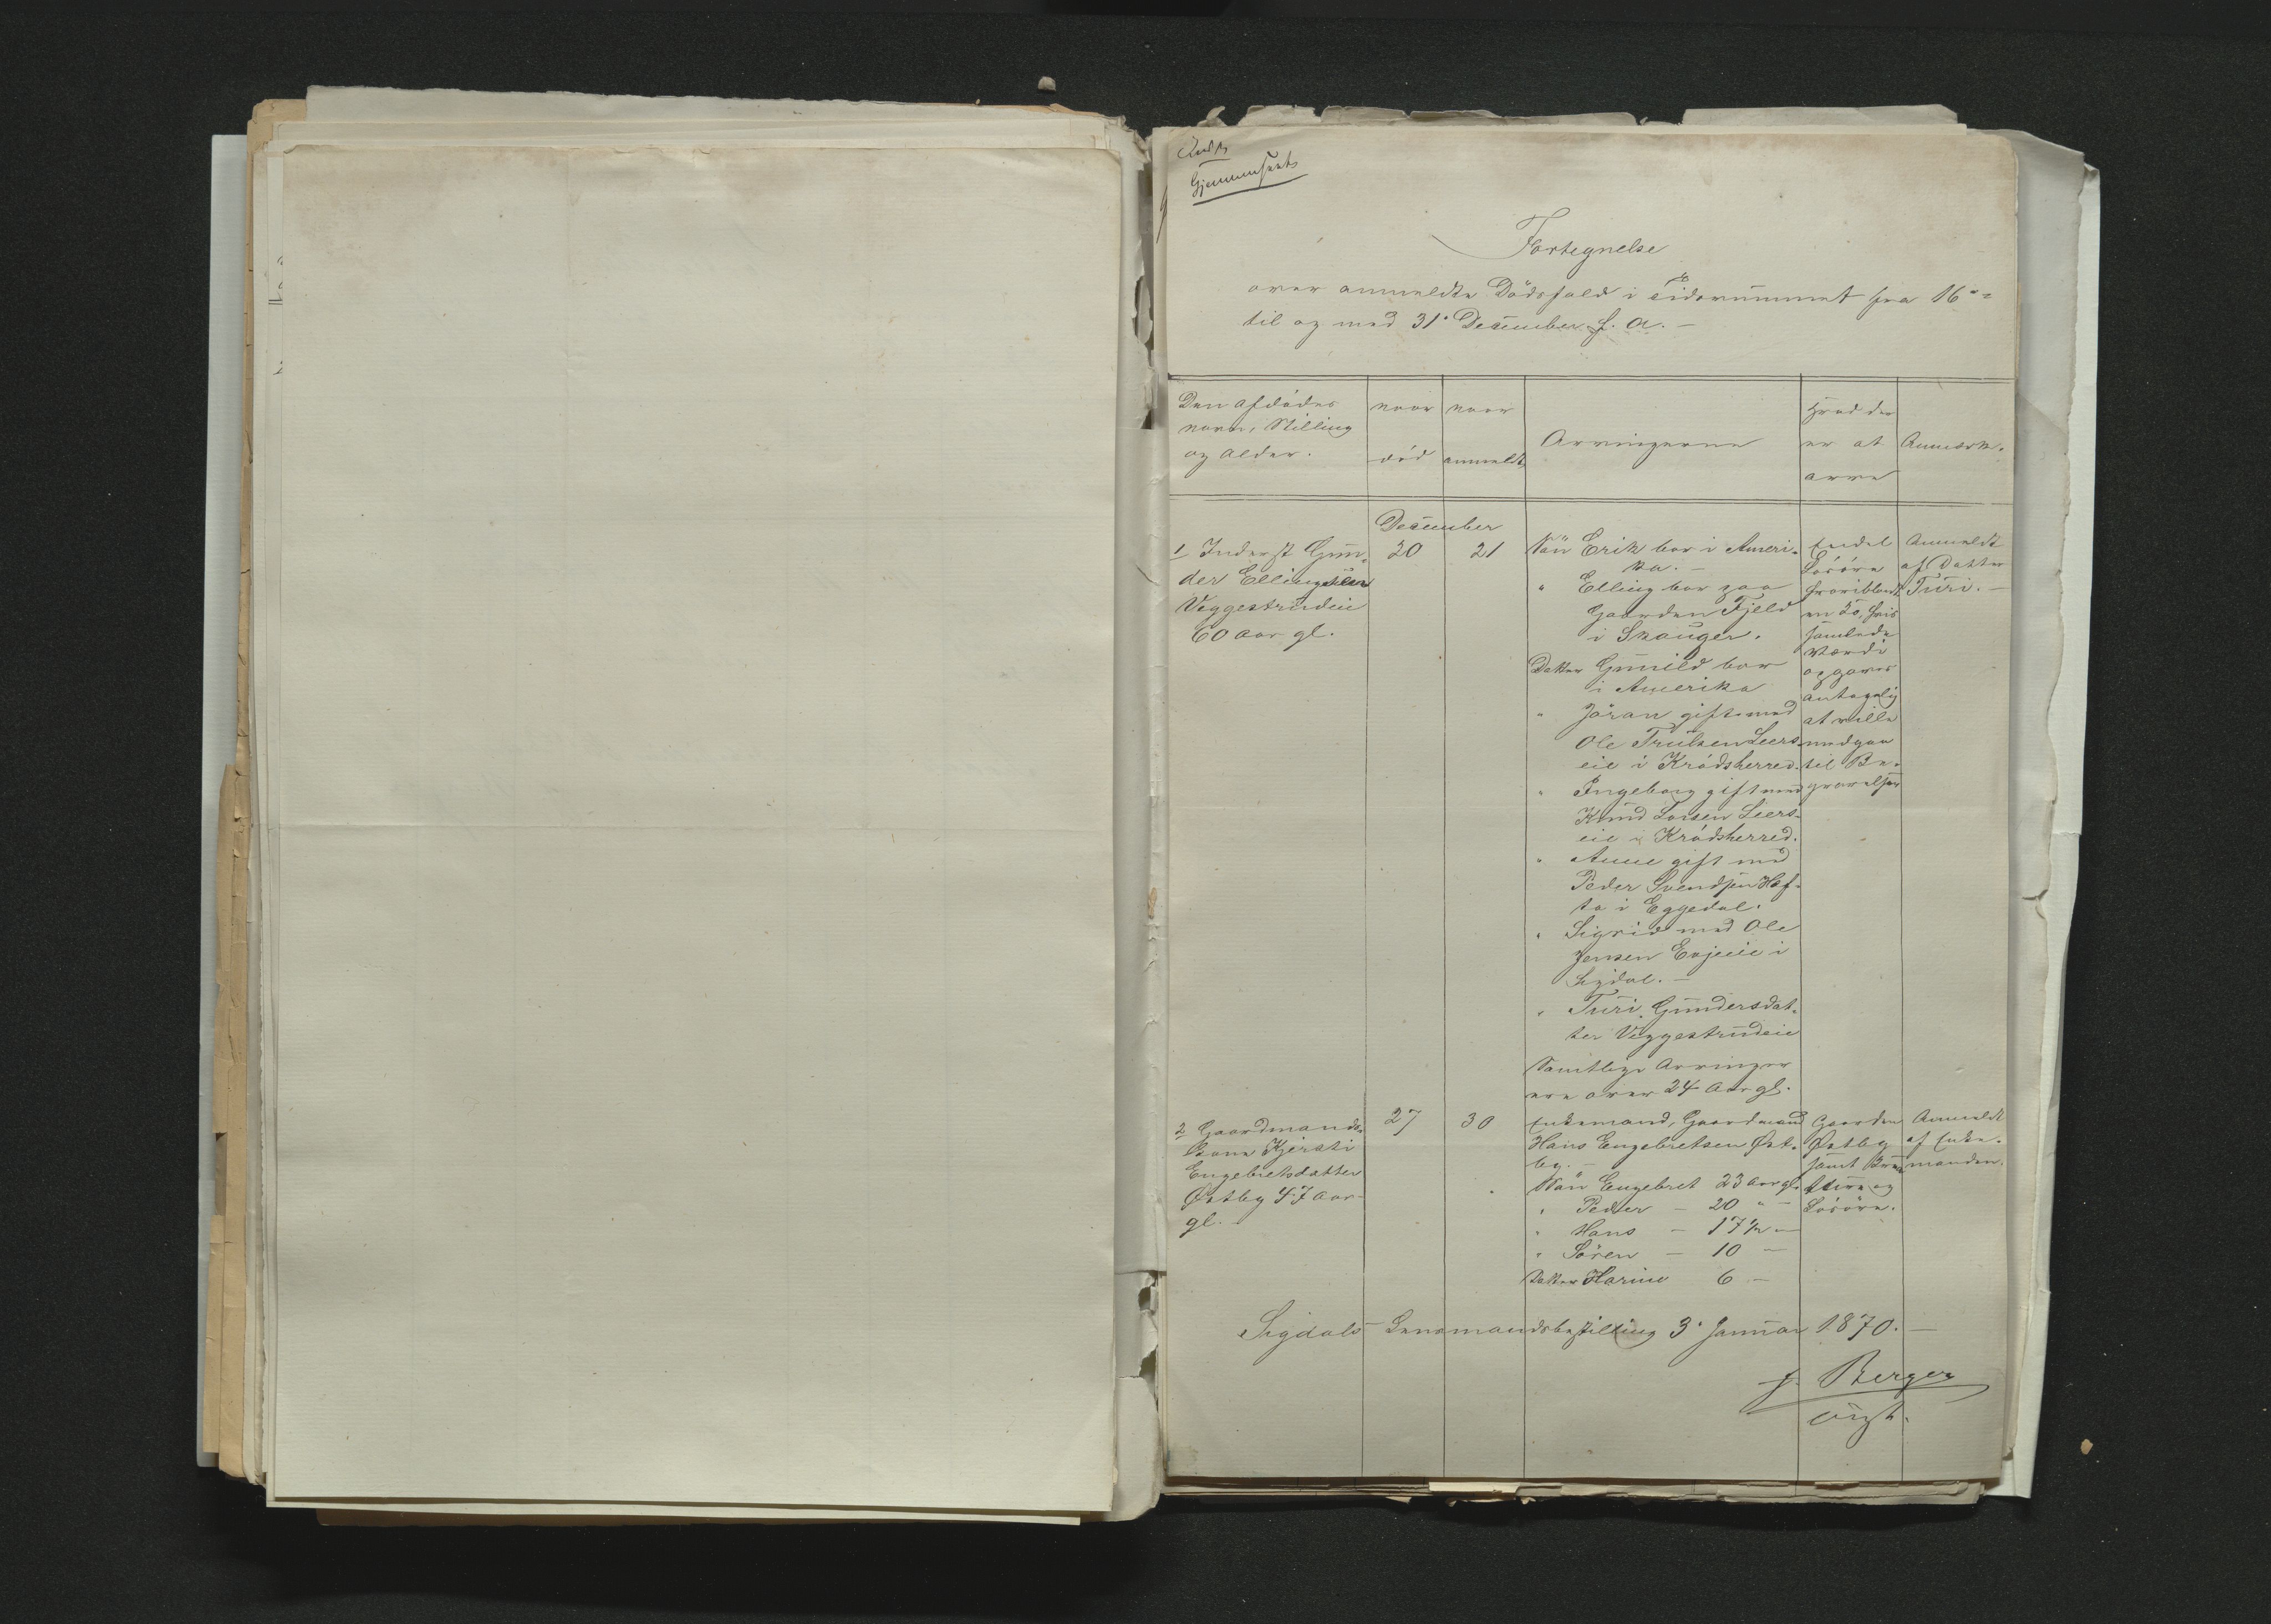 Gjennemseet
Fortegnelse
over anmeldte Dødsfald i Tidsrummet fra 16de
til og med 31. December f. A. –
Den afdødes
navn, Stilling
og Alder.
naar
død
naar
anmeldt
Arvingerne
Hvad der
er at
arve
Anmærk.
December
1 Inderst Gun-
der Ellingsen
Veggestrudeie
60 Aar gl.
20
21
Søn Erik bor i Ameri-
ka. –
" Elling bor paa
Gaarden Fjeld
i Skauger.
Datter Gunild bor
i Amerika
" Jöran gift med
Ole Trulsen Leers-
eie i Krödsherred.
" Ingeborg gift med
Knud Larsen Leers-
eie i Krödsherred.
" Anne gift med
Peder Svendsen Haf-
to i Eggedal.
" Sigrid med Ole
Jensen Evjeeie i
Sigdal. –
" Turi Gundersdat-
ter Veggestrudeie
Samtlige Arvinger
ere over 24 Aar gl.
Endel
Løsøre
hvoriblandt
en Ko, hvis
samlede
Værdi
opgaves
antagelig
at ville
medgaa
til Be-
gravelsen
Anmeldt
af Datter
Turi. –
2 Gaardmands-
kone Kjersti
Engebretsdatter
Østby 47 Aar
gl. –
27
30
Enkemand, Gaardmand
Hans Engebretsen Øst-
by. –
Søn Engebret 23 Aar gl.
" Peder – 20 " –
" Hans – 17½ –
" Sören – 10 –
Datter Karine 6 –
Gaarden
Østby
samt Krea-
ture og
Løsøre.
Anmeldt
af Enke-
manden.
Sigdals Lensmandsbestilling 3. Januar 1870. –
J. Berger